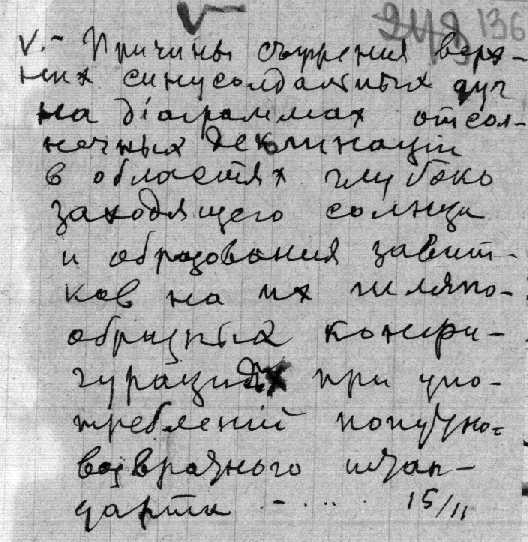 243 136
V.– Причины съуррения верх-
них синусоидальных дуг
на діаграммах отсол-
нечных деклинацій
в областях глубоко
заходящего солнца
и образования завит-
ков на их шляпо-
образных конфи-
гурациях при упо-
треблении попутно-
возвратного штан-
дарта – ... 15/II